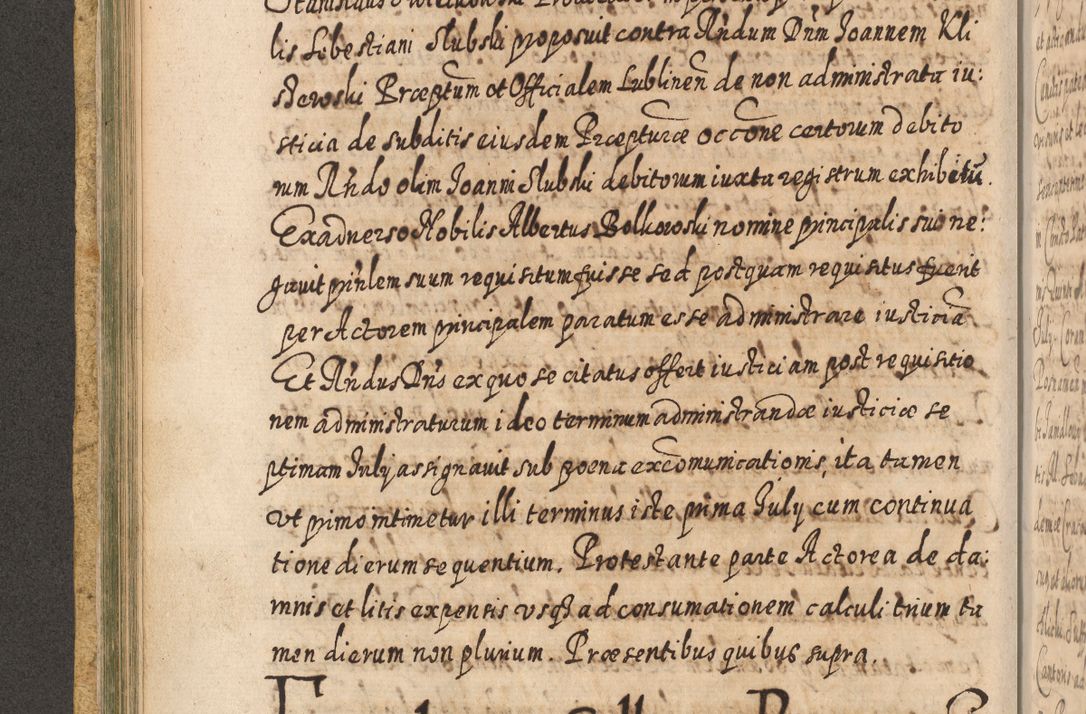 lis Sebestiani Slubski proposuit contra Rndum Dnm Joannem Kli
stewski Præptum et Officialem Lublinen de non administrata iu:
sticia de subditis eiusdem Præpturæ occone certorum debito
rum Rndo olim Joanni Slubski debitorum iuxta registrum exhibitu.
Ex adverso Nobilis Albertus Bolkowski nomine principalis sui ne:
gavit prinlem suum requisitum fuisse sed postquam requisitus fuerit
per Actorem principalem paratum esse administrare iusticia
Et Rndus Dns ex quo se citatus offert iusticiam post requisitio
nem administraturum ideo terminum administrandæ iusticiæ se
ptimam July assignavit sub poena excomunicationis, ita tamen
vt primo intimetur illi terminus iste prima July cum continua
tione dierum sequentium. Protestante parte Actorea de da:
mnis et litis expensis vsq ad consumationem calculi trium ta
men dierum non plurium. Præsentibus quibus supra.